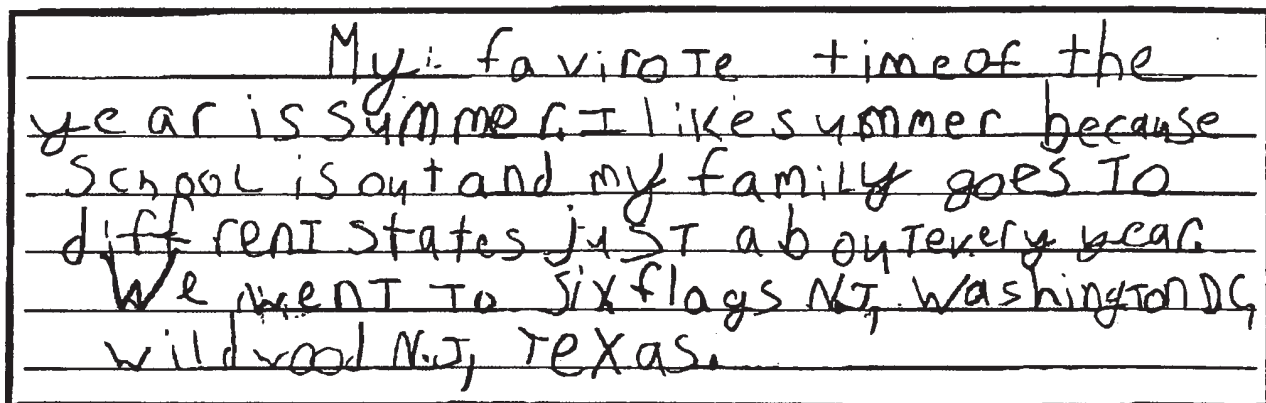 My favirote time of the
year is summer. I like summer because
School is out and my family goes To
diffrent states just about every year.
We went To Six flags N.J, Washington DC,
wildwood N.J, Texas.